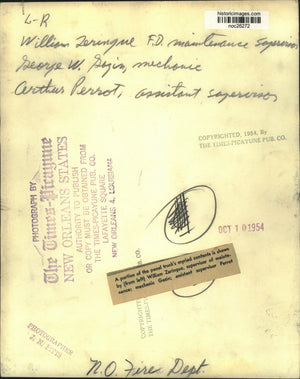 historicimages.com
noc25272
L-R
William Zeringue F.D. maintenance supervisor
George W. Gozin, mechanic
Arthur Perrot, assistant supervisor
COPYRIGHTED, 1954, By
THE TIMES-PICAYUNE PUB. CO.
PHOTOGRAPH BY
The Times-Picayune
NEW ORLEANS STATES
AUTHORITY TO PUBLISH
OR COPY MUST BE OBTAINED FROM
THE TIMES-PICAYUNE PUB. CO.
LAFAYETTE SQUARE
NEW ORLEANS 4, LOUISIANA
OCT 10 1954
A portion of the pound truck's myriad contents is shown
by (from left) William Zeringue, supervisor of mainte-
nance; mechanic Gozin; assistant supervisor Perrot
THE TIMES-PICAYUNE PUB. CO.
PHOTOGRAPHER
N.O. Fire Dept.